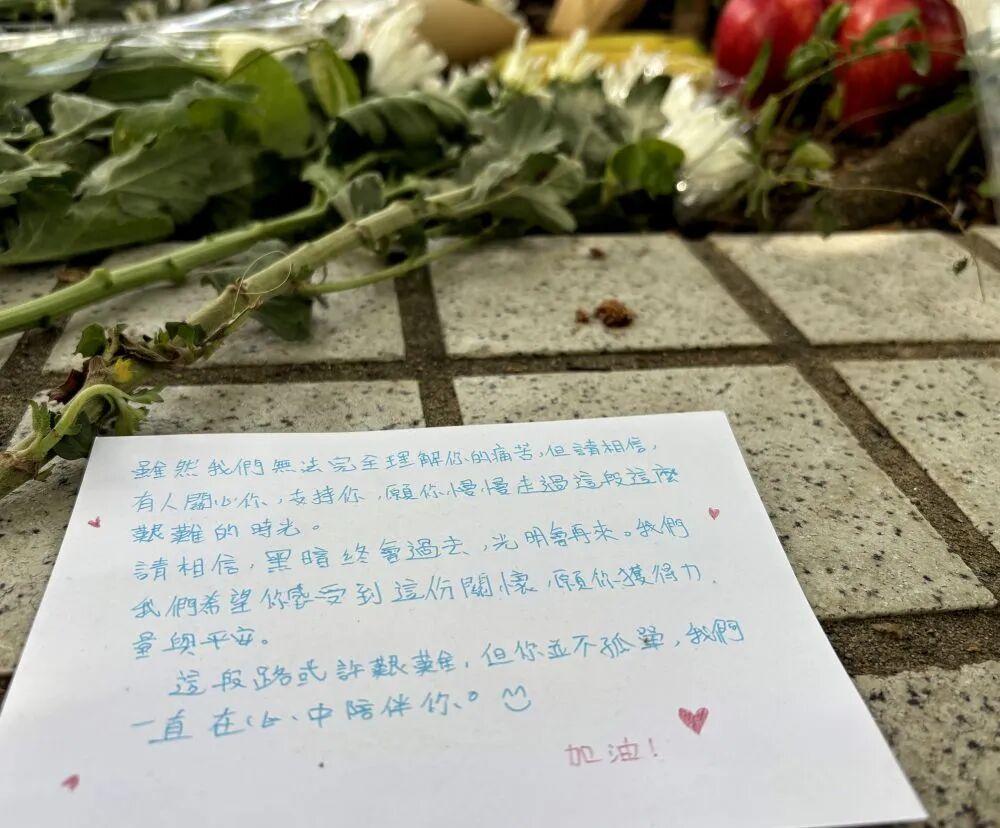 雖然我們無法完全理解你的痛苦,但請相信,
有人關心你,支持你,願你慢慢走過這段這麼
艱難的時光。
請相信,黑暗終會過去,光明會再來。我們
我們希望你感受到這份關懷,願你獲得力
量與平安。
這段路或許艱難,但你並不孤單,我們
一直在心中陪伴你。
加油!